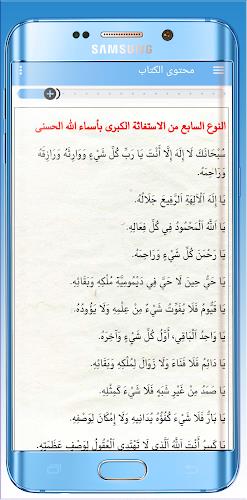 SAMSUNG
محتوى الكتاب
النوع السابع من الاستغاثة الكبرى بأسماء الله الحسنى
سُبْحَانَكَ لَا إِلَهَ إِلَّا أَنْتَ يَا رَبَّ كُلِّ شَيْءٍ وَوَارِثَهُ وَرَازِقَهُ
وَرَاحِمَهُ.
يَا إِلَهَ الْآلِهَةِ الرَّفِيعَ جَلَالُهُ.
يَا اللَّهُ الْمَحْمُودُ فِي كُلِّ فِعَالِهِ.
يَا رَحْمَنَ كُلِّ شَيْءٍ وَرَاحِمَهُ.
يَا حَيُّ حِينَ لَا حَيَّ فِي دَيْمُومِيَّةِ مُلْكِهِ وَبَقَائِهِ.
يَا قَيُّومُ فَلَا يَفُوْتُ شَيْءٌ مِنْ عِلْمِهِ وَلَا يَؤُودُهُ.
يَا وَاحِدُ الْبَاقِي، أَوَّلُ كُلِّ شَيْءٍ وَآخِرَهُ.
يَا دَائِمُ فَلَا فَنَاءَ وَلَا زَوَالَ لِمُلْكِهِ وَبَقَائِهِ.
يَا صَمَدُ مِنْ غَيْرِ شَبَهٍ فَلَا شَيْءَ كَمِثْلِهِ.
يَا بَارُّ فَلَا شَيْءَ كُفُؤُهُ يُدَانِيهِ وَلَا إِمْكَانَ لِوَصْفِهِ.
يَا كَبِيرُ أَنْتَ اللَّهُ الَّذِي لَا تَهْتَدِي الْعُقُولُ لِوَصْفِ عَظَمَتِهِ.